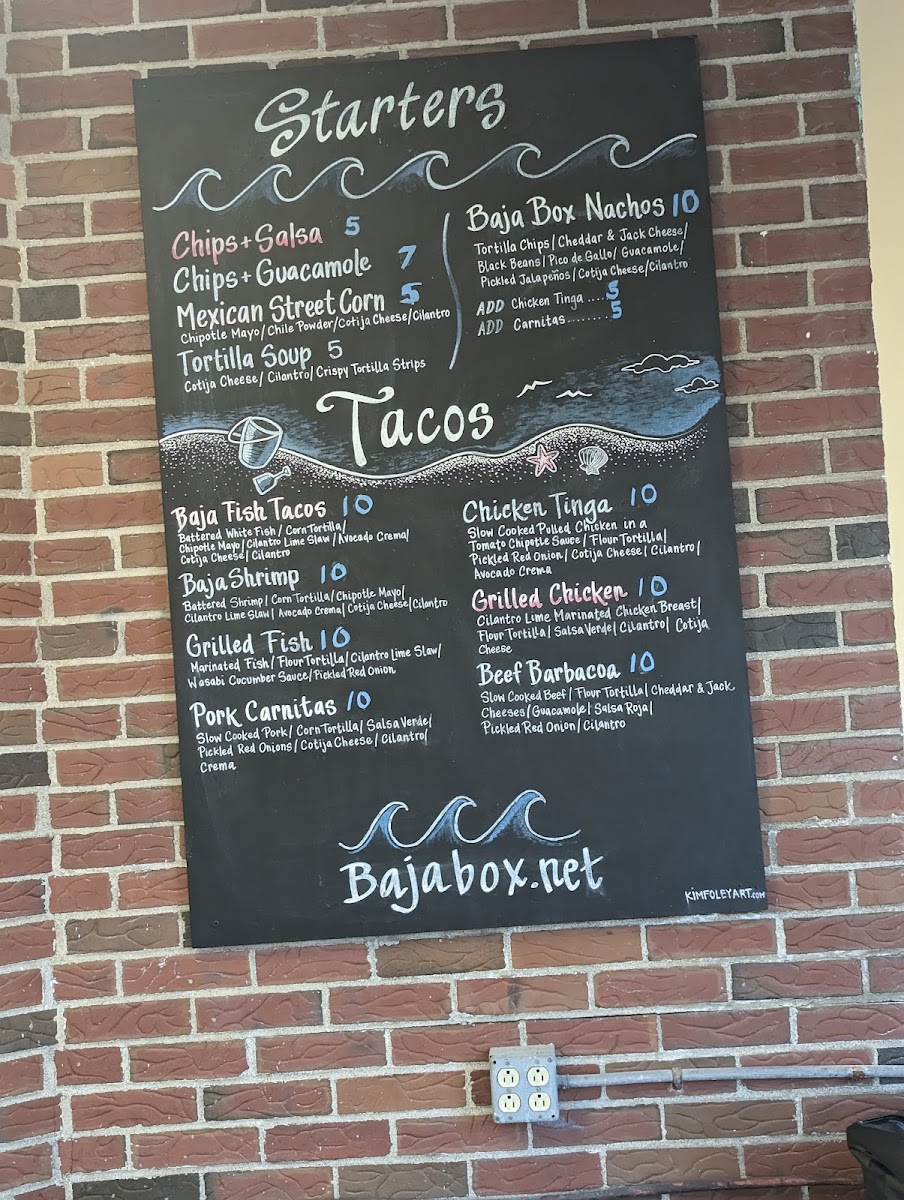 Starters
Chips + Salsa 5
Chips + Guacamole 7
Mexican Street Corn 5
Chipotle Mayo / Chile Powder / Cotija Cheese / Cilantro
Tortilla Soup 5
Cotija Cheese / Cilantro / Crispy Tortilla Strips
Baja Box Nachos 10
Tortilla Chips / Cheddar & Jack Cheese /
Black Beans / Pico de Gallo / Guacamole /
Pickled Jalapeños / Cotija Cheese / Cilantro
ADD Chicken Tinga .... 5
ADD Carnitas ........ 5
Tacos
Baja Fish Tacos 10
Battered White Fish / Corn Tortilla /
Chipotle Mayo / Cilantro Lime Slaw / Avocado Crema /
Cotija Cheese / Cilantro
Baja Shrimp 10
Battered Shrimp / Corn Tortilla / Chipotle Mayo /
Cilantro Lime Slaw / Avocado Crema / Cotija Cheese / Cilantro
Grilled Fish 10
Marinated Fish / Flour Tortilla / Cilantro Lime Slaw /
Wasabi Cucumber Sauce / Pickled Red Onion
Pork Carnitas 10
Slow Cooked Pork / Corn Tortilla / Salsa Verde /
Pickled Red Onions / Cotija Cheese / Cilantro /
Crema
Chicken Tinga 10
Slow Cooked Pulled Chicken in a
Tomato Chipotle Sauce / Flour Tortilla /
Pickled Red Onion / Cotija Cheese / Cilantro /
Avocado Crema
Grilled Chicken 10
Cilantro Lime Marinated Chicken Breast /
Flour Tortilla / Salsa Verde / Cilantro / Cotija
Cheese
Beef Barbacoa 10
Slow Cooked Beef / Flour Tortilla / Cheddar & Jack
Cheeses / Guacamole / Salsa Roja /
Pickled Red Onion / Cilantro
Bajabox.net
KIMFOLEYART.com